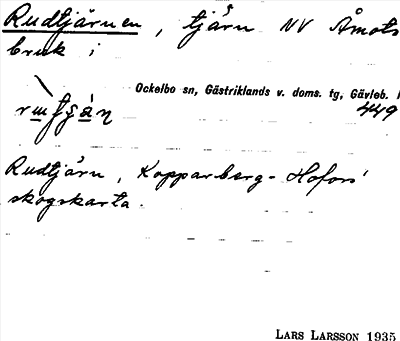 Rudtjärnen, tjärn NV Åmots
bruk i
Ockelbo sn, Gästriklands v. doms. tg, Gävleb. l
449
Rudtjärn, Kopparberg-Hofors'
skogskarta.
LARS LARSSON 1935